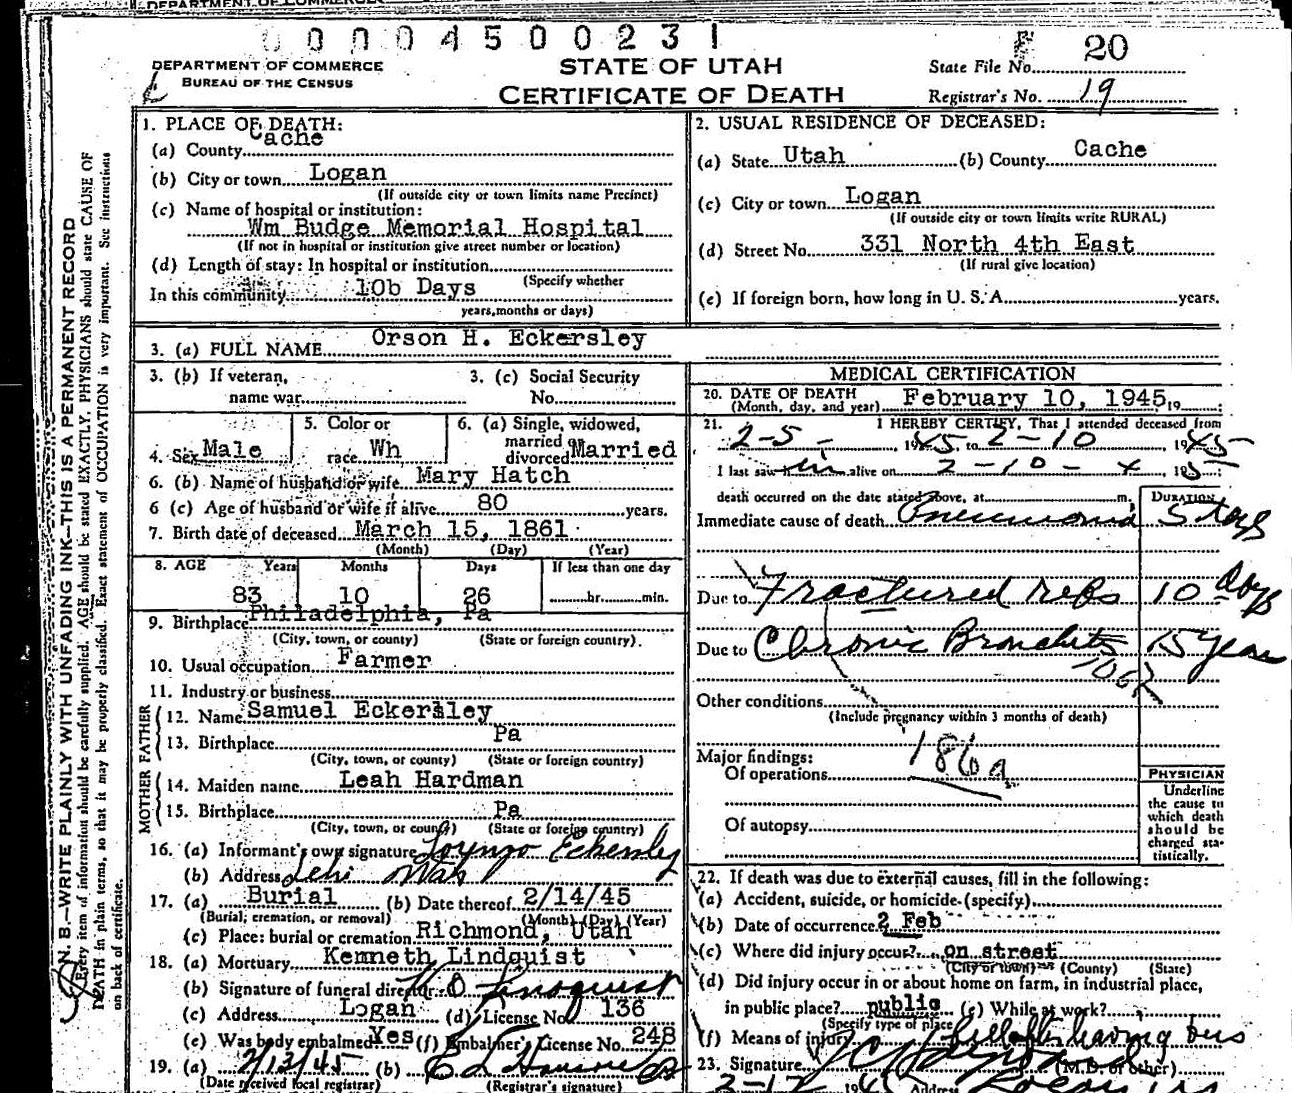 DEPARTMENT OF COMMERCE
00004500231
DEPARTMENT OF COMMERCE
BUREAU OF THE CENSUS
STATE OF UTAH
CERTIFICATE OF DEATH
State File No. 20
Registrar's No. 19
N. B.—WRITE PLAINLY WITH UNFADING INK—THIS IS A PERMANENT RECORD
Every item of information should be carefully supplied. AGE should be stated EXACTLY. PHYSICIANS should state CAUSE OF
DEATH in plain terms, so that it may be properly classified. Exact statement of OCCUPATION is very important. See instructions
on back of certificate.
1. PLACE OF DEATH:
(a) County Cache
(b) City or town Logan
(If outside city or town limits name Precinct)
(c) Name of hospital or institution:
Wm Budge Memorial Hospital
(If not in hospital or institution give street number or location)
(d) Length of stay: In hospital or institution
(Specify whether
In this community 10b Days
years, months or days)
2. USUAL RESIDENCE OF DECEASED:
(a) State Utah (b) County Cache
(c) City or town Logan
(If outside city or town limits write RURAL)
(d) Street No. 331 North 4th East
(If rural give location)
(e) If foreign born, how long in U. S. A. years.
3. (a) FULL NAME Orson H. Eckersley
3. (b) If veteran,
name war
3. (c) Social Security
No.
4. Sex Male
5. Color or
race Wh
6. (a) Single, widowed,
married
divorced Married
6. (b) Name of husband or wife Mary Hatch
6 (c) Age of husband or wife if alive 80 years.
7. Birth date of deceased March 15, 1861
(Month) (Day) (Year)
8. AGE Years Months Days If less than one day
83 10 26 hr. min.
9. Birthplace Philadelphia, Pa
(City, town, or county) (State or foreign country).
10. Usual occupation Farmer
11. Industry or business
FATHER
12. Name Samuel Eckersley
13. Birthplace Pa
(City, town, or county) (State or foreign country)
MOTHER
14. Maiden name Leah Hardman
15. Birthplace Pa
(City, town, or county) (State or foreign country)
16. (a) Informant's own signature Lorenzo Eckersley
(b) Address Lehi Utah
17. (a) Burial (b) Date thereof 2/14/45
(Burial, cremation, or removal) (Month) (Day) (Year)
(c) Place: burial or cremation Richmond, Utah
18. (a) Mortuary Kenneth Lindquist
(b) Signature of funeral director Lindquist
(c) Address Logan (d) License No. 136
(e) Was body embalmed? Yes (f) Embalmer's License No. 248
19. (a) 2/13/45 (b)
(Date received local registrar) (Registrar's signature)
MEDICAL CERTIFICATION
20. DATE OF DEATH
(Month, day, and year) February 10, 1945, 19
21. I HEREBY CERTIFY, That I attended deceased from
2-5-, 1945, to 2-10, 1945
I last saw him alive on 2-10-, 19
death occurred on the date stated above, at m.
DURATION
Immediate cause of death Pneumonia 5 days
Due to Fractured ribs 10 days
Due to Chronic Bronchitis 15 years
106
Other conditions
(Include pregnancy within 3 months of death)
186a
Major findings:
Of operations
Of autopsy
PHYSICIAN
Underline
the cause to
which death
should be
charged sta-
tistically.
22. If death was due to external causes, fill in the following:
(a) Accident, suicide, or homicide (specify)
(b) Date of occurrence 2 Feb
(c) Where did injury occur? on street
(City or town) (County) (State)
(d) Did injury occur in or about home on farm, in industrial place,
in public place? public (e) While at work?
(Specify type of place)
(f) Means of injury fell after leaving bus
23. Signature (M.D. or other)
Address Logan